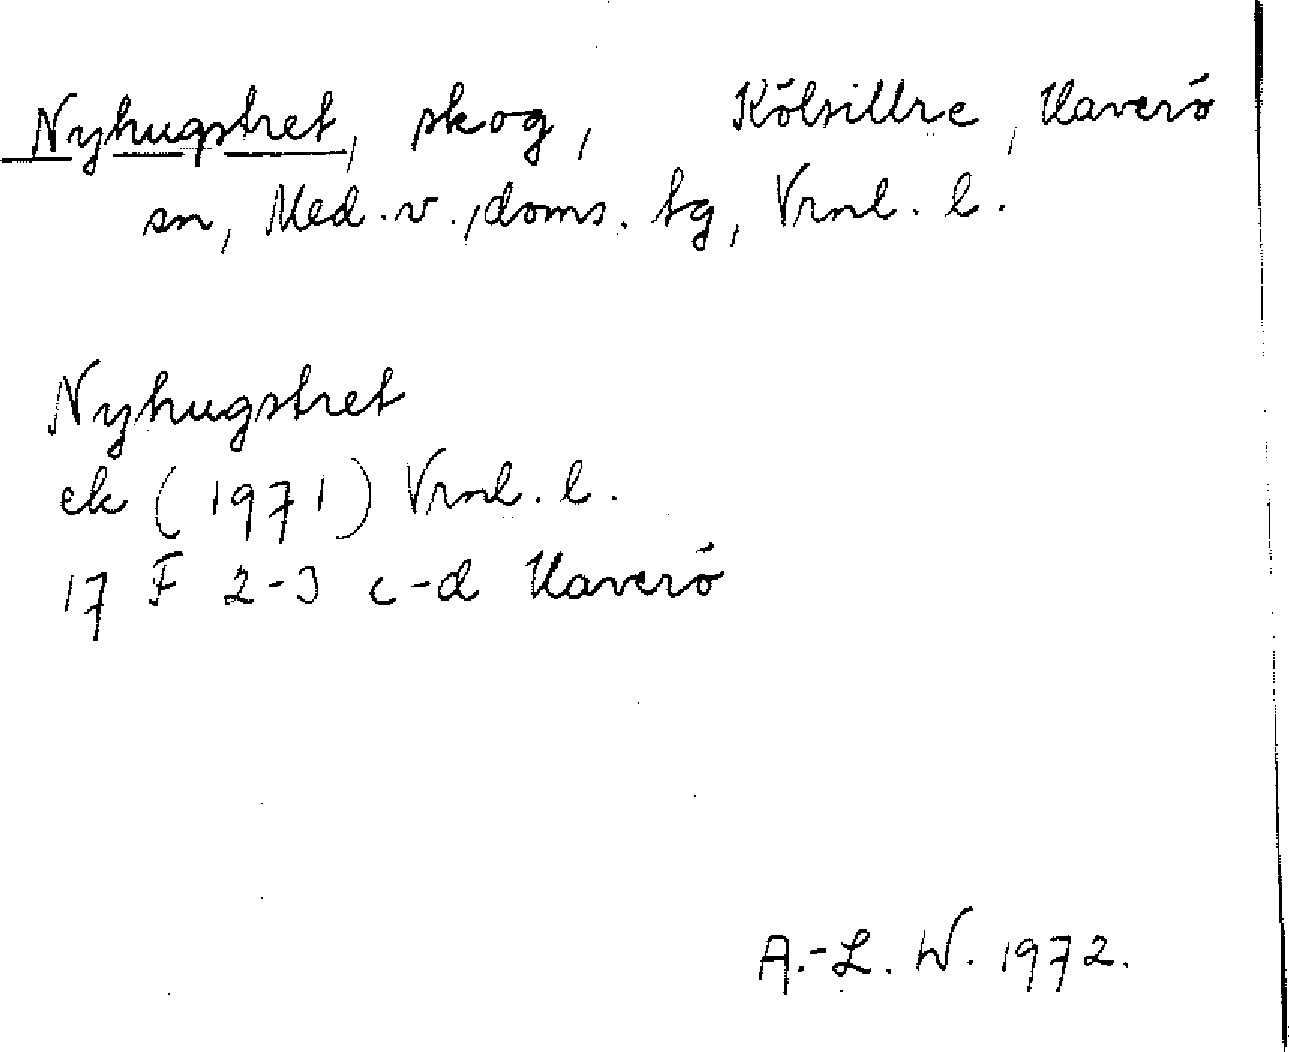 Nyhugstret, skog, Kölsillre, Haverö
sn, Med. v., doms. tg, Vrnl. l.
Nyhugstret
ek (1971) Vrnl. l.
17 F 2-3 c-d Haverö
A.-L. W. 1972.